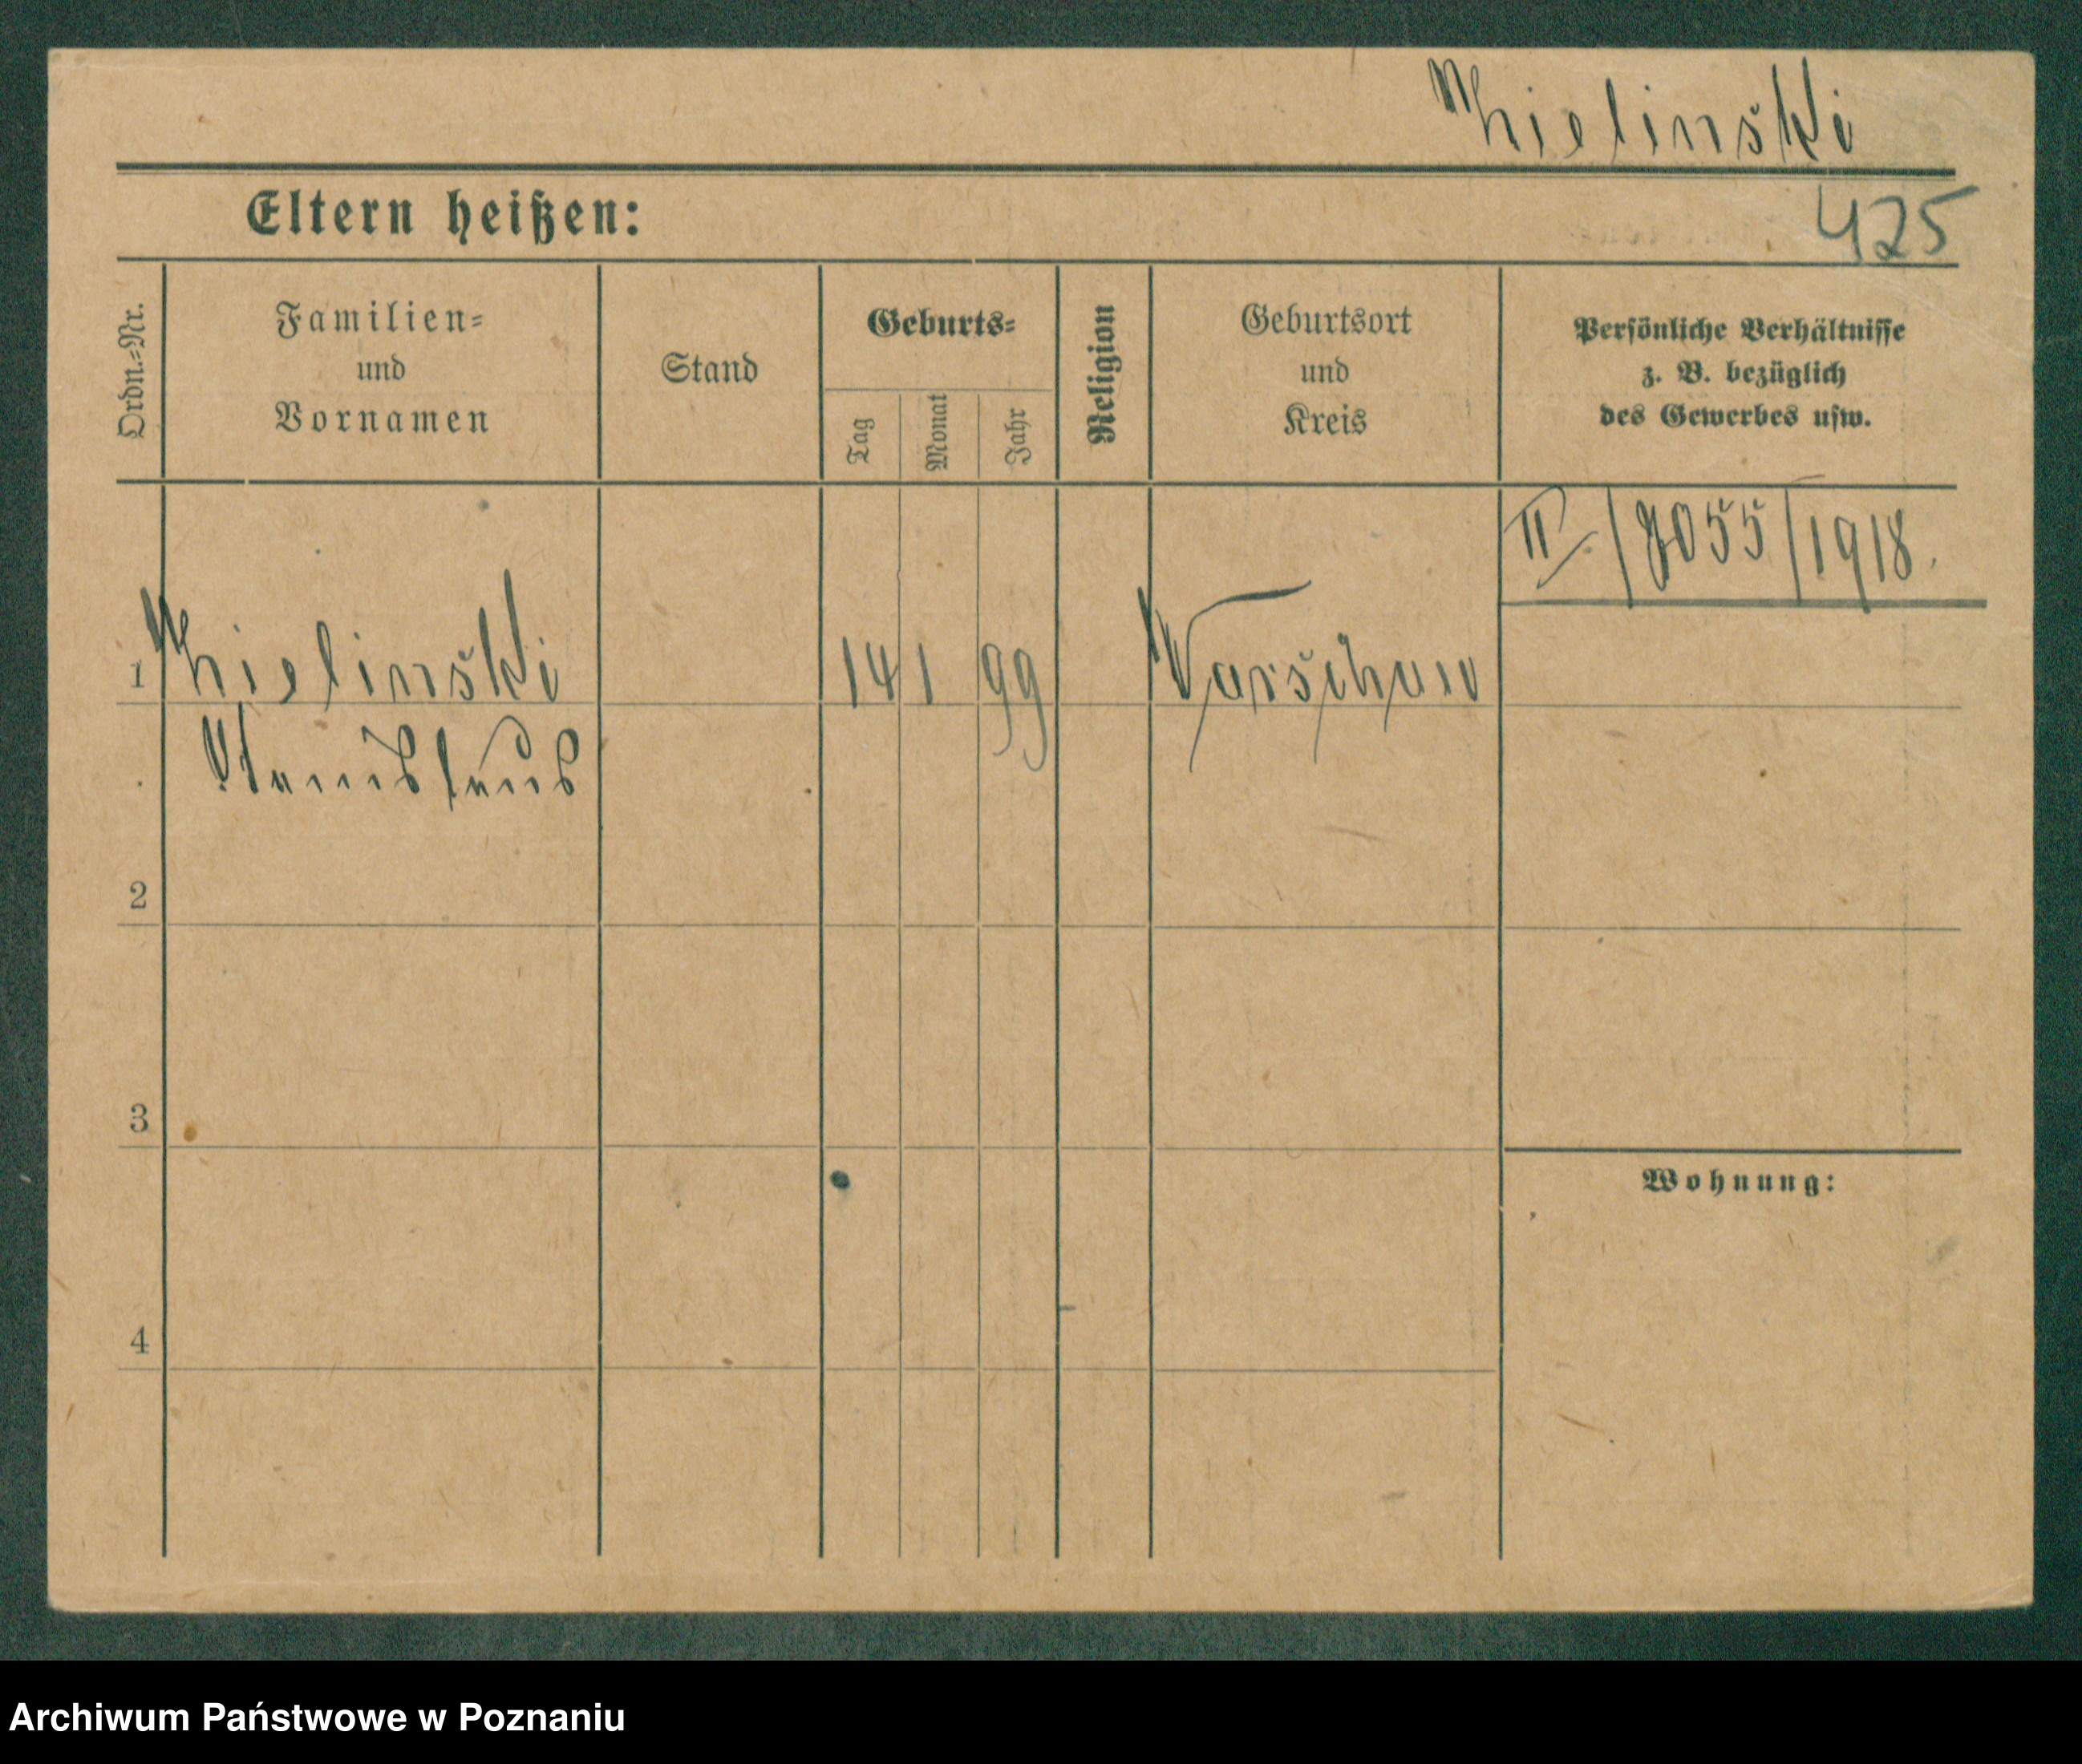 Eltern heißen:
425
Ordn.-Nr.
Familien-
und
Vornamen
Stand
Geburts-
Tag
Monat
Jahr
Religion
Geburtsort
und
Kreis
Persönliche Verhältnisse
z. B. bezüglich
des Gewerbes usw.
1918.
1
14 1 99
Warschau
Stanislaus
2
3
Wohnung:
4
Archiwum Państwowe w Poznaniu